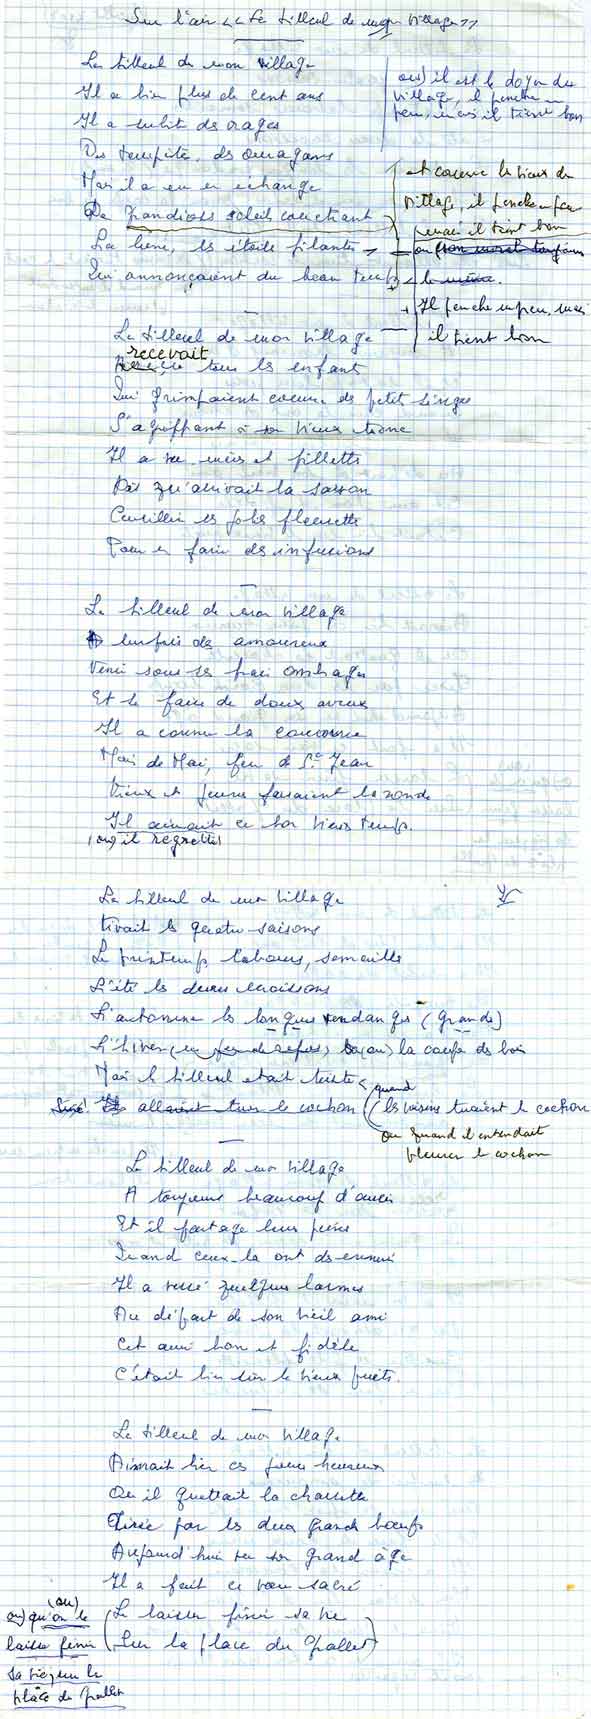 Sur l'air << Le tilleul de mon village >>
Le tilleul de mon village
Il a bien plus de cent ans
Il a subit des orages
Des tempêtes, des ouragans
Mais il a eu en échange
De grandioses soleils couchant
La lune, les étoile filantes
Qui annonçaient du beau temps
ou) il est le doyen du
village, il penche un
peu, mais il tient bon
et comme le vieux du
village, il penche un peu
mais il tient bon
ou
Il penche un peu, mais
il tient bon
Le tilleul de mon village
recevait tous les enfants
Qui grimpaient comme des petit singes
S'agrippant à son vieux tronc
Il a vu mères et fillettes
Dès qu'arrivait la saison
Cueillir ses jolies fleurettes
Pour en faire des infusions
Le tilleul de mon village
A bien des amoureux
Venir sous ses frais ombrages
Et se faire de doux aveux
Il a connu la couronne
Mais de Mai, feu de St Jean
Vieux et jeunes faisaient la ronde
Il aimait ce bon vieux temps.
(ou) il regrette)
Le tilleul de mon village
Vivait les quatre saisons
Le printemps labours, semailles
L'été les dures moissons
L'automne les longues vendanges (grandes)
L'hiver (ou) la coupe des bois
Mais le tilleul était triste
allaient tuer le cochon
quand
les voisins tuaient le cochon
ou quand il entendait
pleurer le cochon
Le tilleul de mon village
A toujours beaucoup d'amis
Et il partage leurs peines
Quand ceux-la ont des ennuis
Il a versé quelques larmes
Au départ de son vieil ami
Cet ami bon et fidèle
C'était bien sûr le vieux puits.
Le tilleul de mon village
Aimait bien ces jours heureux
Où il guettait la charrette
Tirée par les deux grands boeufs
Aujourd'hui vu son grand âge
Il a fait ce voeu sacré
Le laisser finir sa vie
Sur la place du Pallet
(ou)
ou) qu'on le
laisse finir
sa vie, sur la
place du Pallet